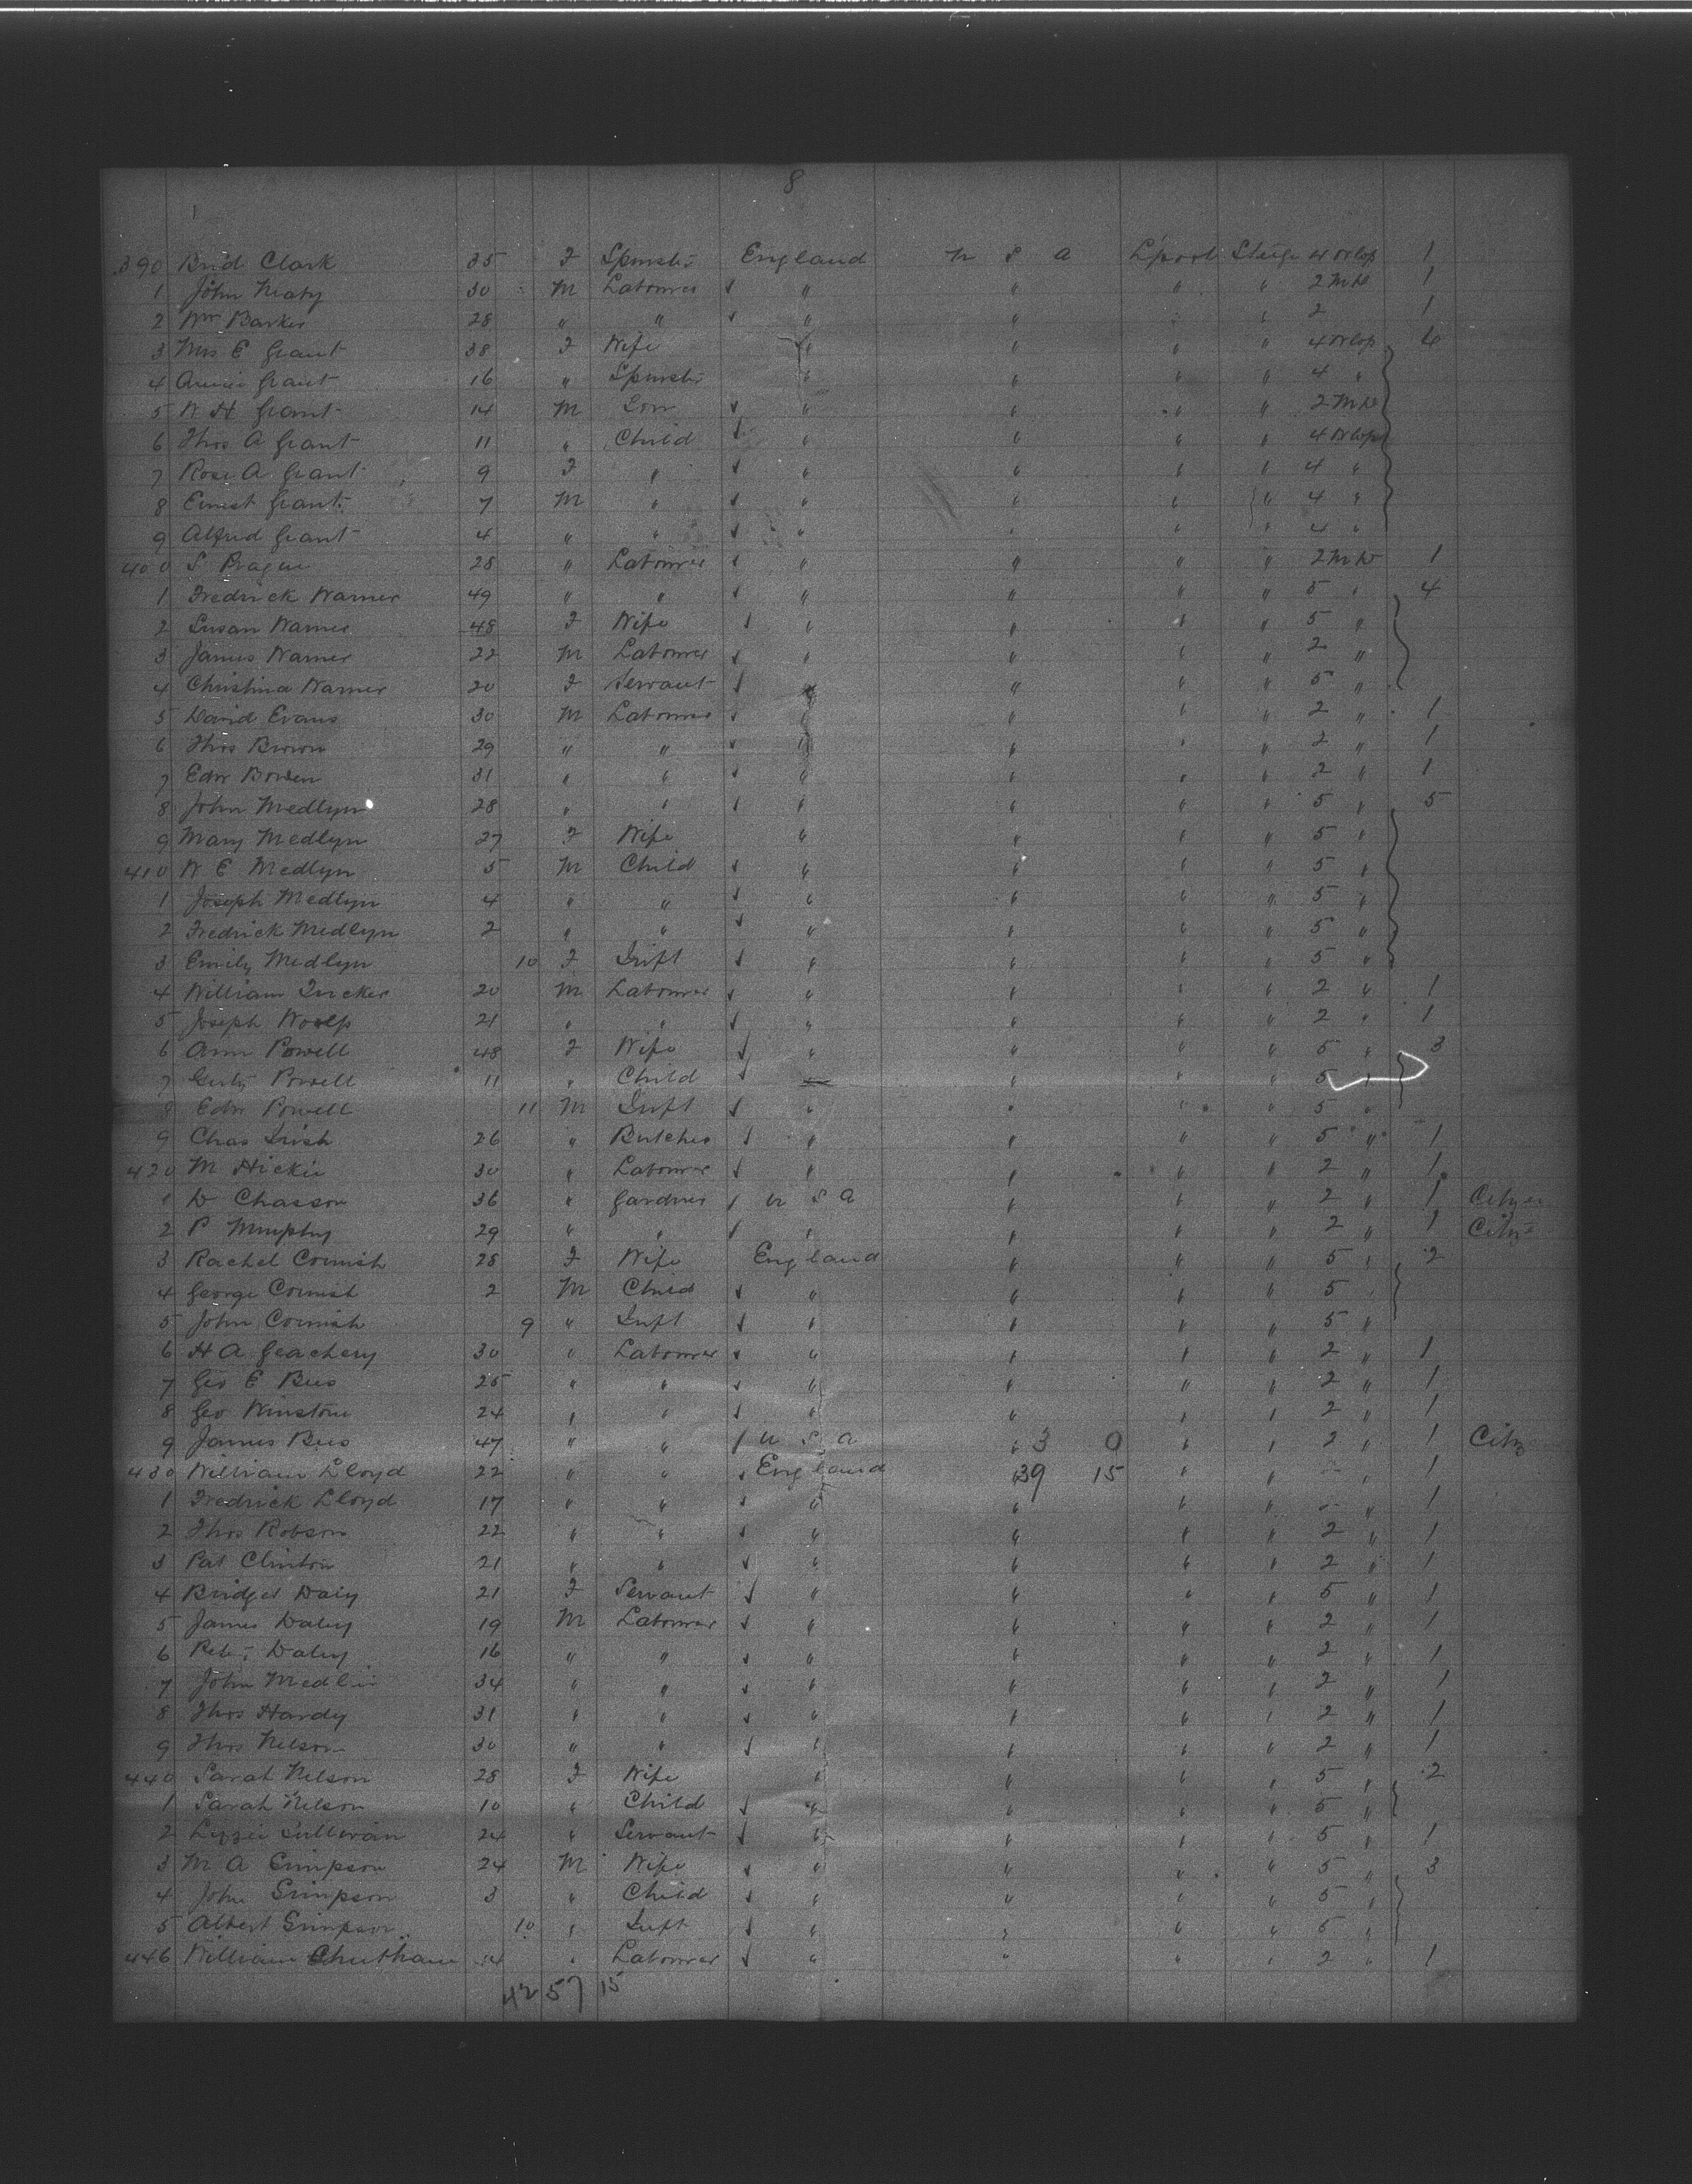 8
390 Brid Clark 35 F Spinstr England U S A L'pool Steige 4 Orlop 1
1 John Neary 30 M Labourer " " " " 2 M D 1
2 Wm Barker 28 " " " " " " 2 1
3 Mrs E Grant 38 F Wife " " " " 4 Orlop 4
4 Annie Grant 16 " Spinstr " " " " 4 "
5 W H Grant 14 M Son " " " " 2 M D
6 Thos A Grant 11 " Child " " " " 4 Orlop
7 Rose A Grant 9 F " " " " " 4 "
8 Ernest Grant 7 M " " " " " 4 "
9 Alfred Grant 4 " " " " " " 4 "
400 S Prague 28 " Labourer " " " " 2 M D 1
1 Fredrick Warner 49 " " " " " " 5 " 4
2 Susan Warner 48 F Wife " " " " 5 "
3 James Warner 22 M Labourer " " " " 2 "
4 Christina Warner 20 F Servant " " " " 5 "
5 David Evans 30 M Labourer " " " " 2 " 1
6 Thos Brown 29 " " " " " " 2 " 1
7 Edw Bowen 31 " " " " " " 2 " 1
8 John Medlyn 28 " " " " " " 5 " 5
9 Mary Medlyn 27 F Wife " " " " 5 "
410 W E Medlyn 5 M Child " " " " 5 "
1 Joseph Medlyn 4 " " " " " " 5 "
2 Fredrick Medlyn 2 " " " " " " 5 "
3 Emily Medlyn 10 F Inft " " " " 5 "
4 William Tucker 20 M Labourer " " " " 2 " 1
5 Joseph 21 " " " " " " 2 " 1
6 Ann Powell 48 F Wife " " " " 5 " 3
7 Powell 11 " Child " " " " 5 "
8 Edw Powell 11 M Inft " " " " 5 "
9 Chas Irish 26 " Butcher " " " " 5 " 1
420 M Hickie 30 " Labourer " " " " 2 " 1
1 D Chasson 36 " Gardner U S A " " " 2 " 1
2 P Murphy 29 " " " " " " 2 " 1
3 Rachel Cornish 28 F Wife England " " " 5 " 2
4 George Cornish 2 M Child " " " " 5
5 John Cornish 9 " Inft " " " " 5 "
6 H A Geachery 30 " Labourer " " " " 2 " 1
7 Geo E 25 " " " " " " 2 " 1
8 Geo Winstone 24 " " " " " " 2 " 1
9 James 47 " " U S A " 3 0 " " 2 " 1
430 William Lloyd 22 " " England " 39 15 " " " 1
1 Fredrick Lloyd 17 " " " " " " " 1
2 Thos Robson 22 " " " " " " 2 " 1
3 Pat Clinton 21 " " " " " " 2 " 1
4 Bridget Daly 21 F Servant " " " " 5 " 1
5 James Daley 19 M Labourer " " " " 2 " 1
6 Daley 16 " " " " " " 2 " 1
7 John Medlin 34 " " " " " " 2 " 1
8 Thos Hardy 31 " " " " " " 2 " 1
9 Thos Nelson 30 " " " " " " 2 " 1
440 Sarah Nelson 28 F Wife " " " " 5 " 2
1 Sarah Nelson 10 " Child " " " " 5 "
2 Lizzie Sullivan 24 " Servant " " " " 5 " 1
3 M A Simpson 24 M Wife " " " " 5 " 3
4 John Simpson 3 " Child " " " " 5 "
5 Albert Simpson 10 " Inft " " " " 5 "
446 William " Labourer " " " " 2 " 1
42 57 15